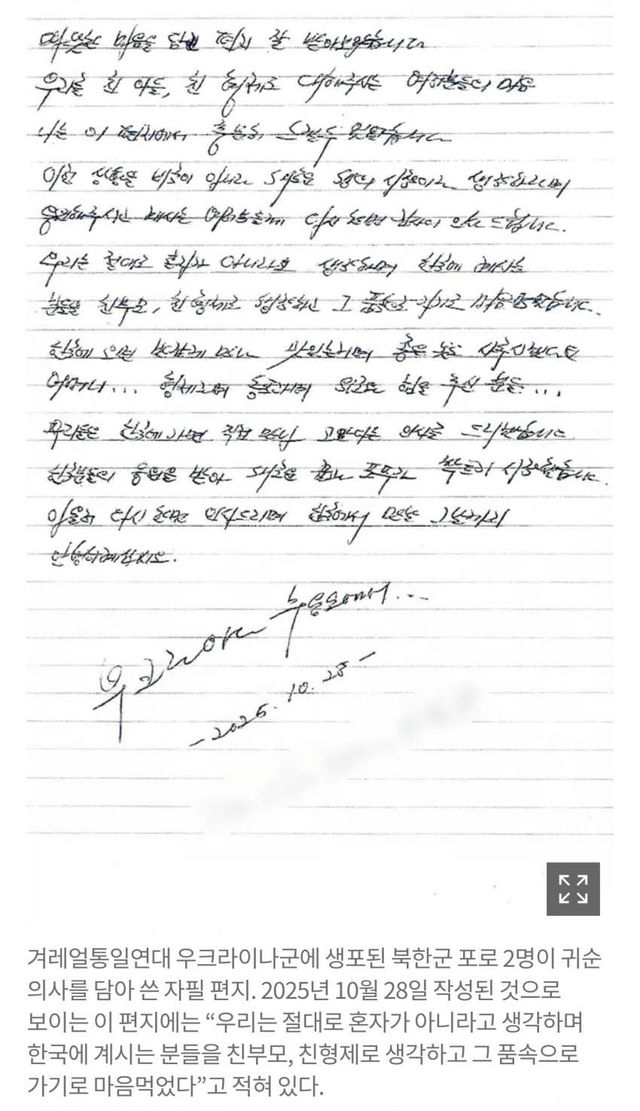 따뜻한 마음을 담은 편지 잘 받아보았습니다
우리를 친 아들, 친 형제로 대해주시는 여러분들의 마음
나는 이 편지에서
이런 상황을 비극이 아니라 새로운 시작이라 생각하라며
응원해주시는 여러분들께 다시 한번 감사의 인사 드립니다.
우리는 절대로 혼자가 아니라고 생각하며 한국에 계시는
분들을 친부모, 친형제로 생각하고 그 품속으로 가기로 마음먹었습니다.
한국에
어머니... 힘을 주신 분들...
우리들은 한국에 가면 직접 만나 고맙다는 인사를 드리겠습니다
한국분들의 응원을 받아 새로운 꿈과 포부가 시작합니다.
다시 한번 인사드리며 한국에서 만날 그날까지
안녕히계십시오.
우크라이나 수용소에서...
- 2025. 10. 28 -
겨레얼통일연대 우크라이나군에 생포된 북한군 포로 2명이 귀순
의사를 담아 쓴 자필 편지. 2025년 10월 28일 작성된 것으로
보이는 이 편지에는 “우리는 절대로 혼자가 아니라고 생각하며
한국에 계시는 분들을 친부모, 친형제로 생각하고 그 품속으로
가기로 마음먹었다”고 적혀 있다.